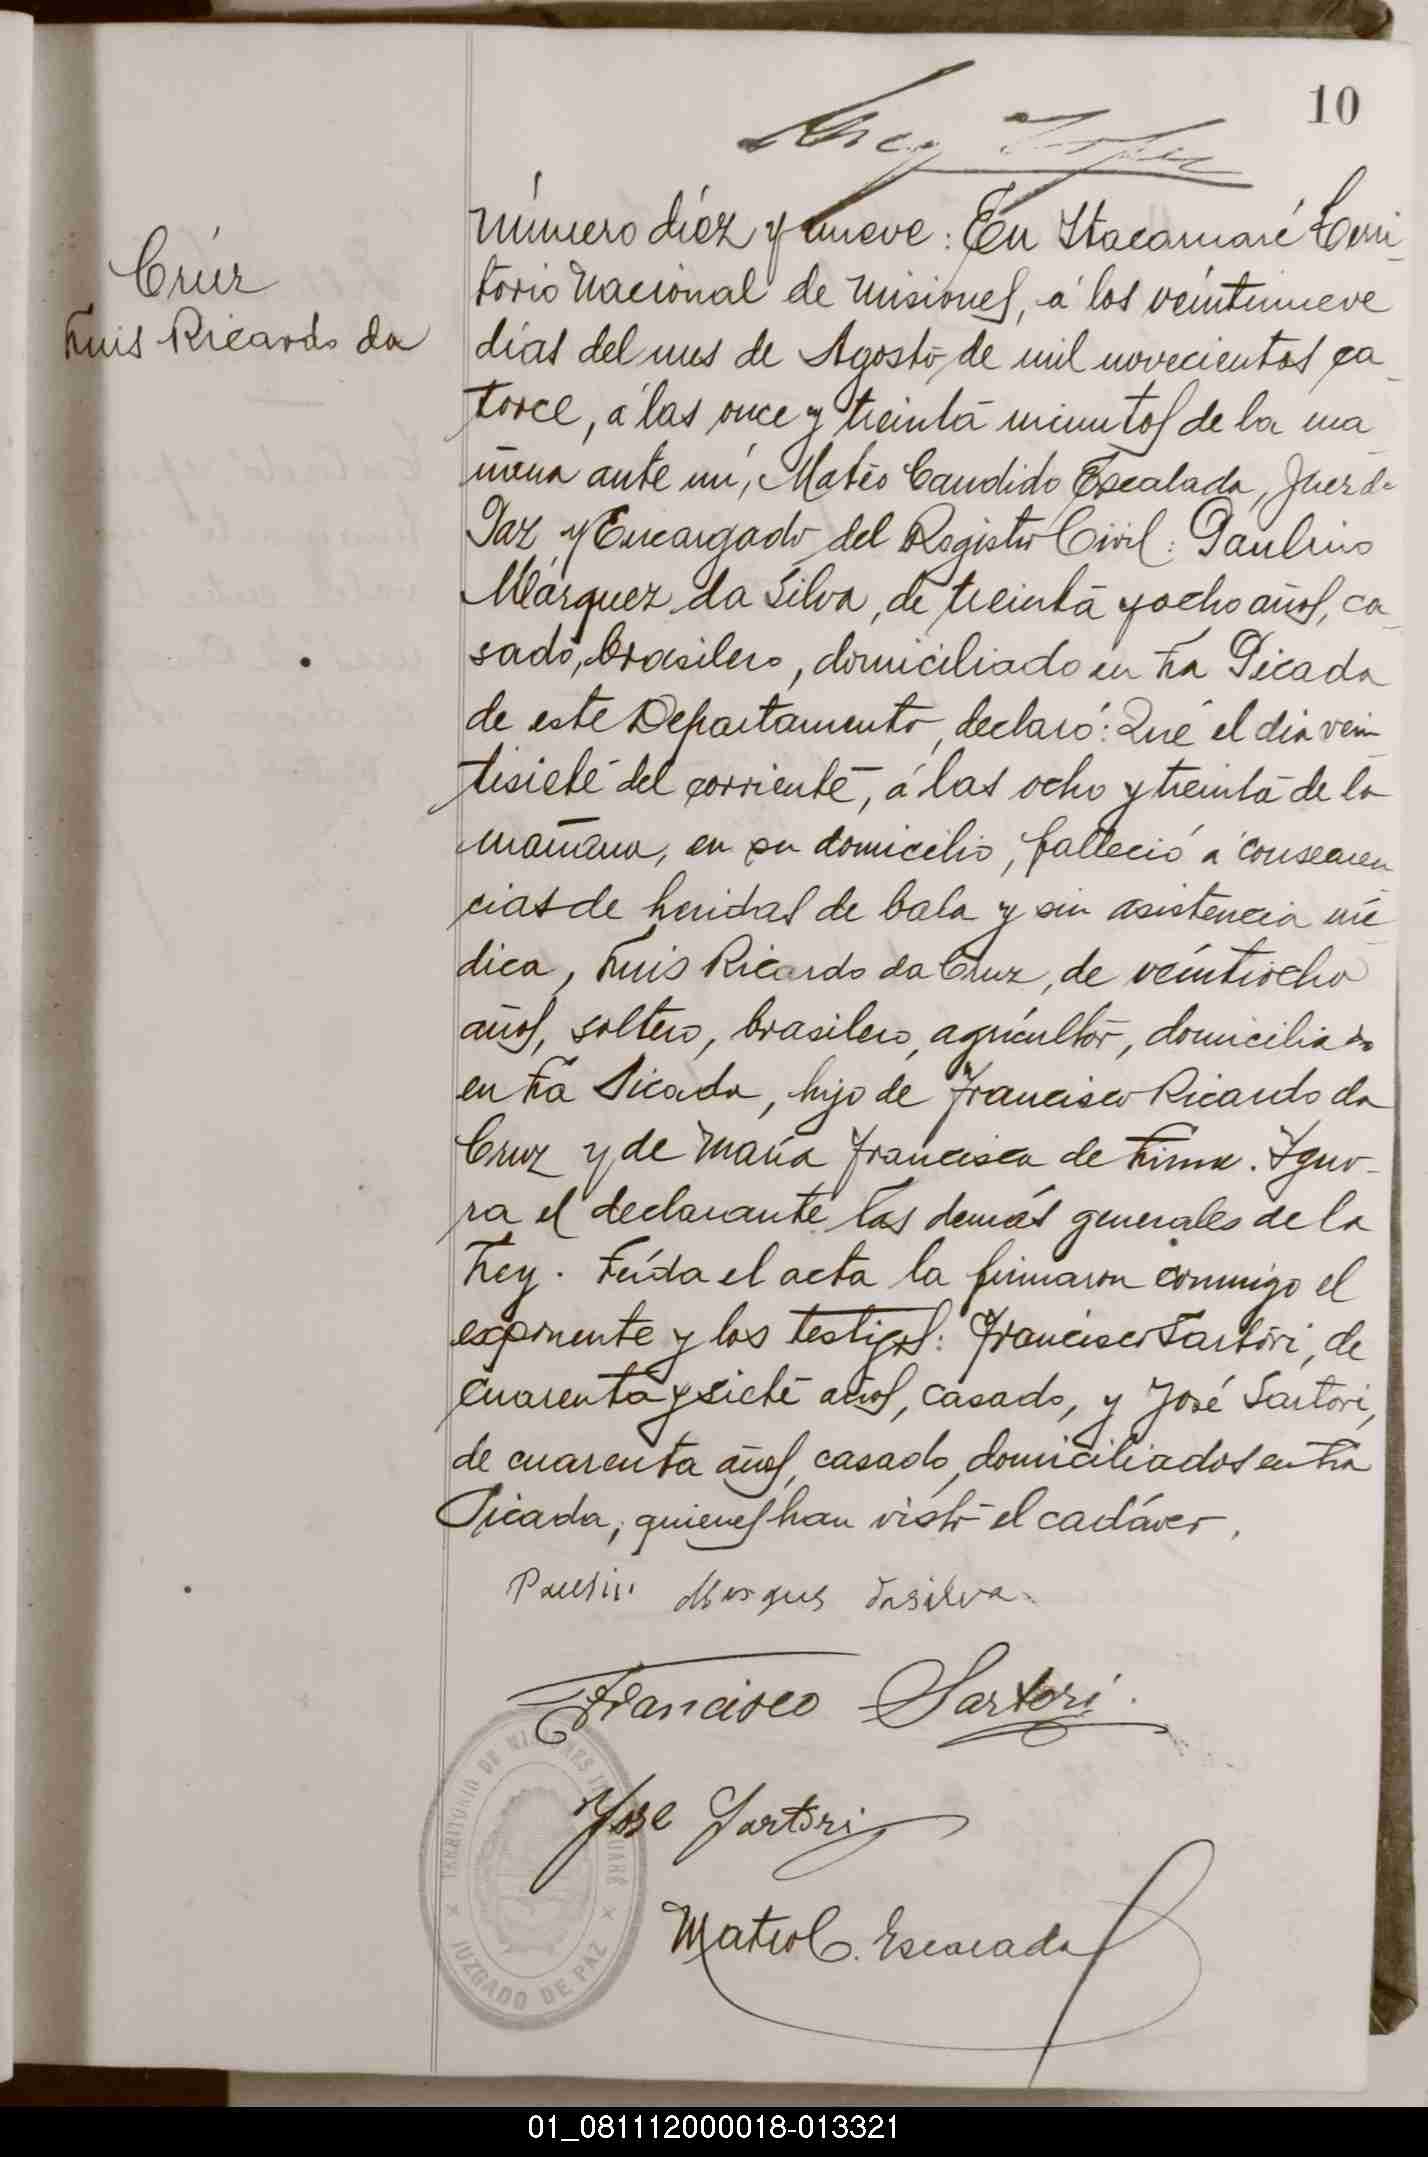 10
Número diéz y nueve: En Itacaruaré Terri-
Crúz
torio Nacional de Misiones, á los veintinueve
Luis Ricardo da
días del mes de Agosto de mil novecientos ca-
torce, á las once y treinta minutos de la ma
ñana ante mí, Matéo Candido Escalada, Juez de
Paz y Encargado del Registro Civil: Paulino
Márquez da Silva, de treinta y ocho años, ca-
sado, brasilero, domiciliado en La Picada
de este Departamento, declaró: Qué el dia vein-
tisiete del corriente, á las ocho y treinta de la
mañana, en su domicilio, falleció á consecuen
cias de heridas de bala y sin asistencia mé-
dica, Luis Ricardo da Cruz, de veintiocho
años, soltero, brasilero, agricultor, domiciliado
en La Picada, hijo de Francisco Ricardo da
Cruz y de María Francisca de Lima. Igno-
ra el declarante las demás generales de la
Ley. Leída el acta la firmaron conmigo el
exponente y los testigos: Francisco Sartori, de
cuarenta y siete años, casado, y José Sartori,
de cuarenta años, casado, domiciliados en La
Picada, quienes han visto el cadáver.
Paulin Marques dasilva
Francisco Sartori.
Jose Sartori
Mateo C. Escalada
TERRITORIO DE MISIONES
JUZGADO DE PAZ
01_081112000018-013321